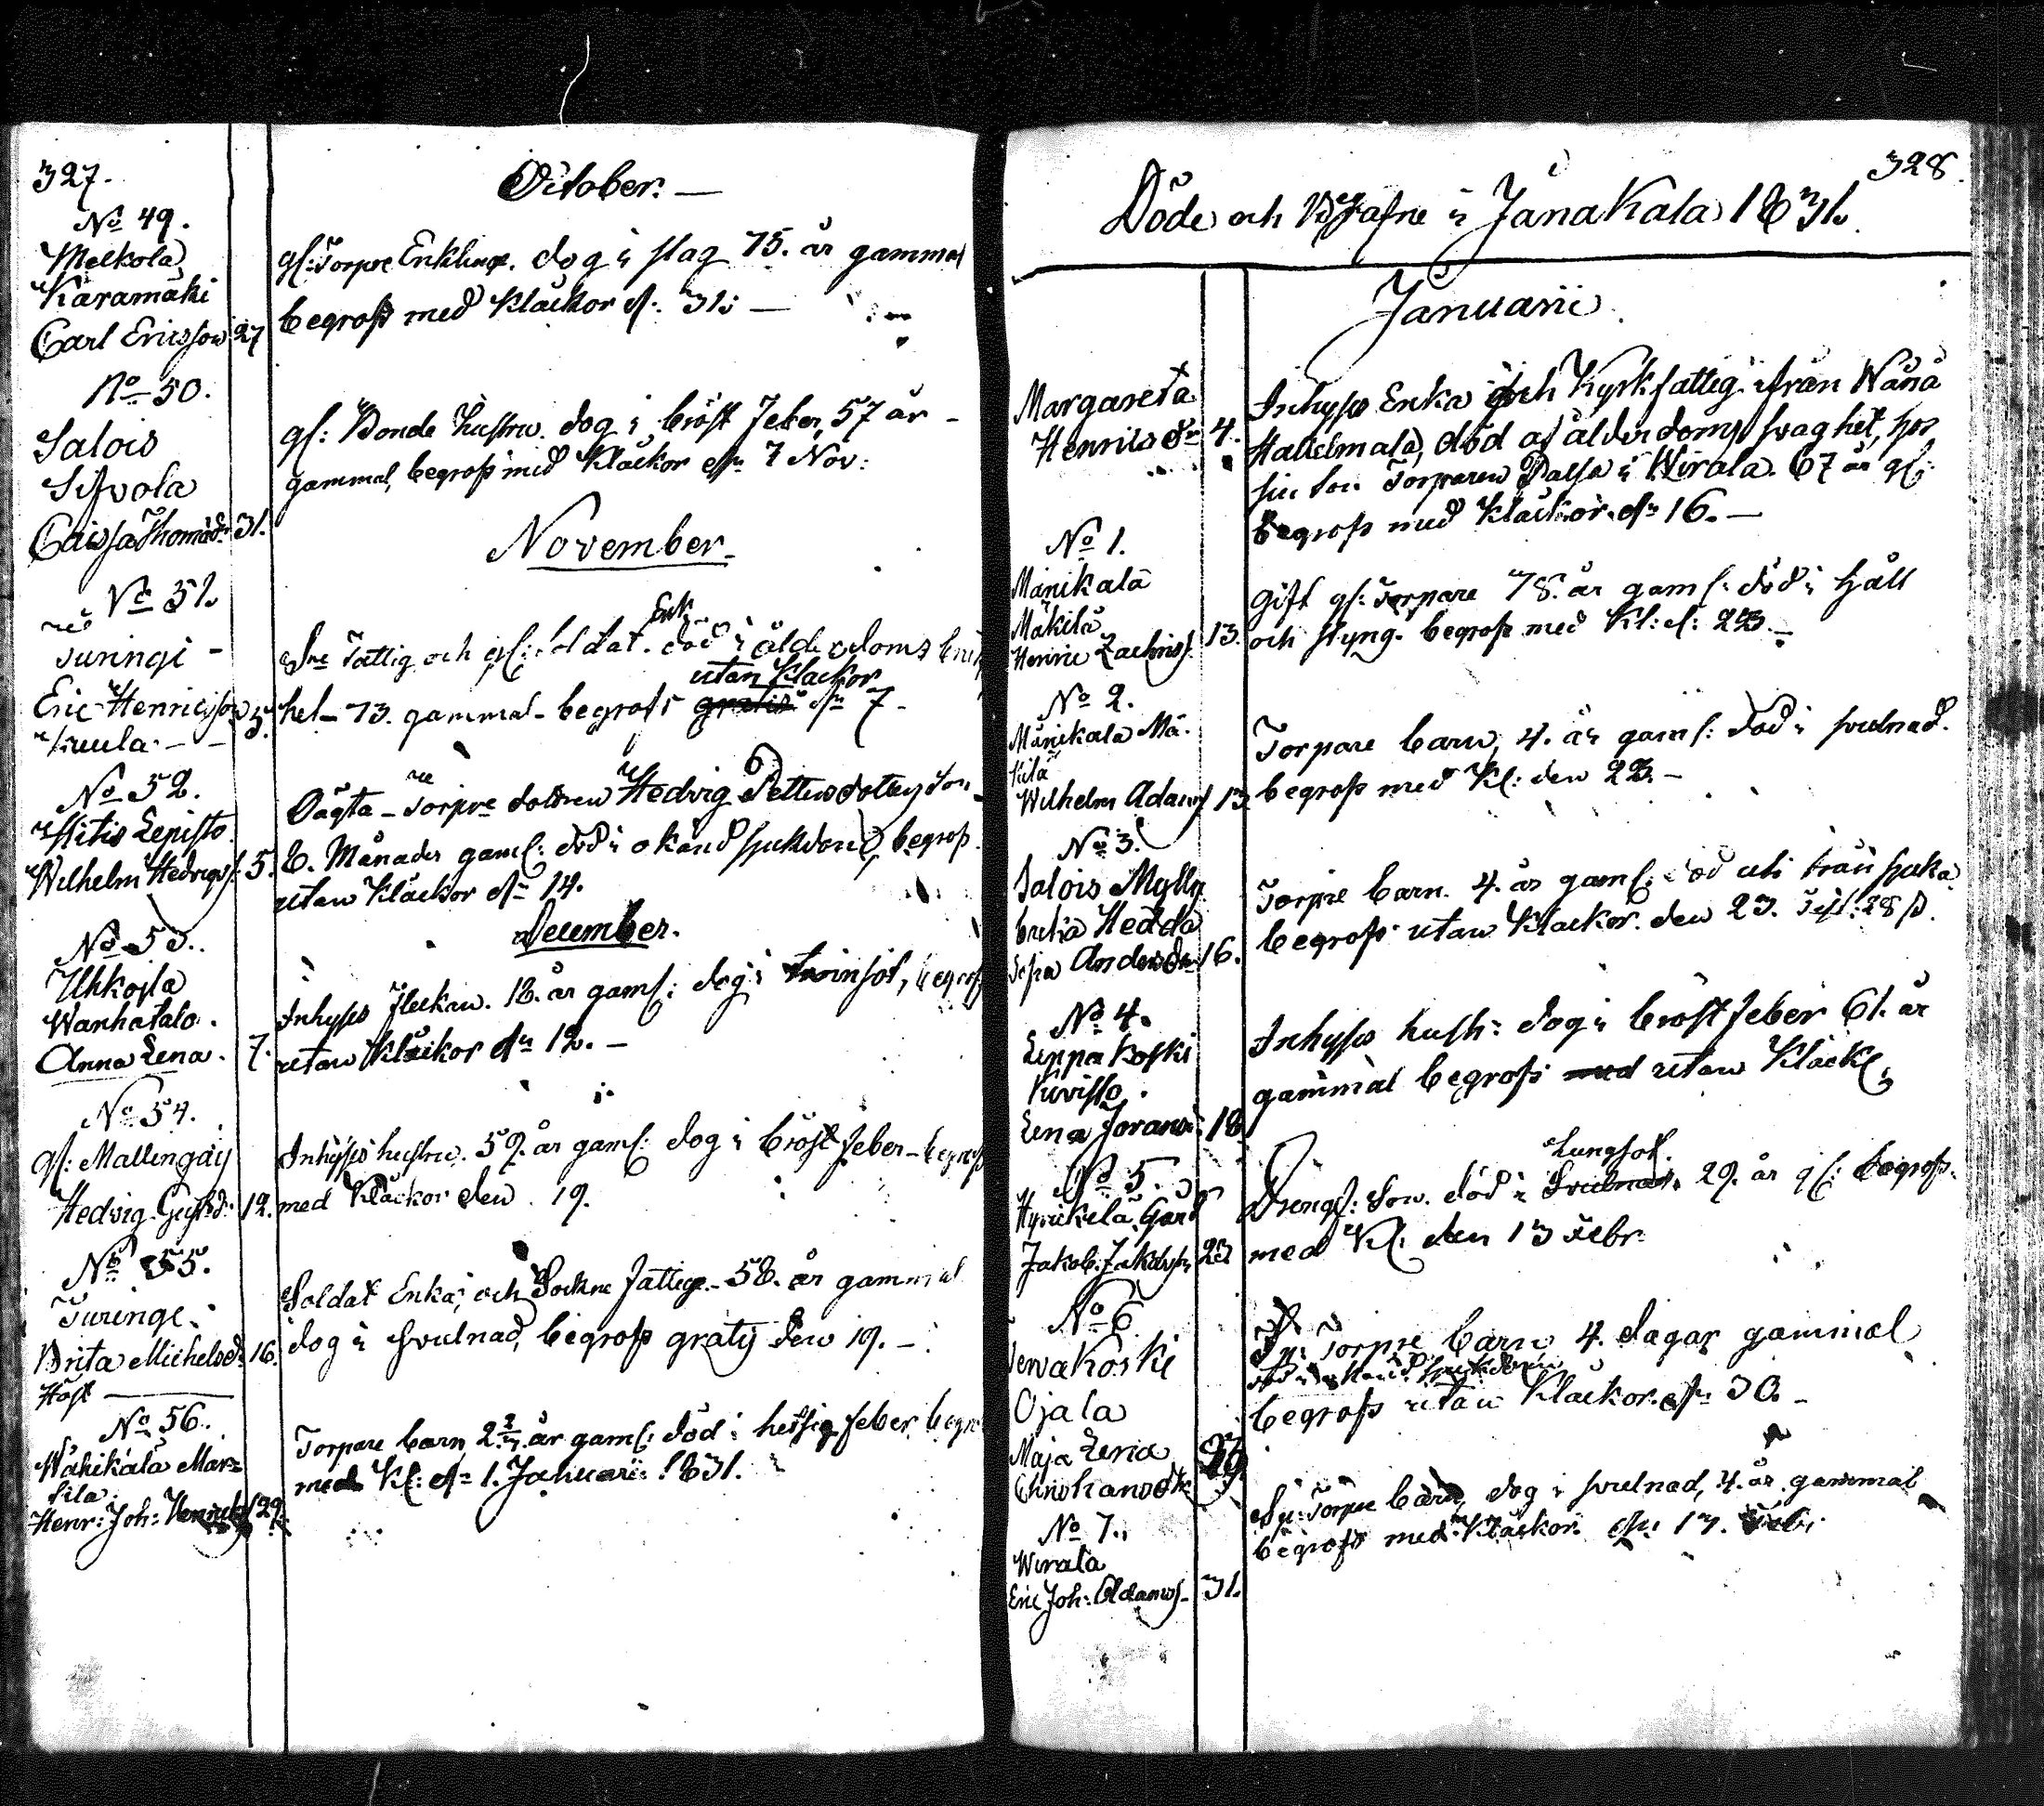 327.
October.
No 49.
Melkola
Karamäki
Carl Ericsson 27
gl: Torpre Enkling. dog i slag 75. år gammal
begrofs med Kläckor d: 31.
No 50.
Salois
Sifvola
Caisa Thomæd: 31.
gl: Bonde hustru. dog i bröst feber, 57 år
gammal, begrofs med Kläckor dn 7 Nov:
November.
No 51.
Turingi
Eric Henricsson 3.
Sne Fattig och gl: Soldat. Enk. död i ålderdoms
het 73. gammal begrofs gratis utan Klackor dn 7.
No 52.
Hitis Lepistö
Wilhelm Hedvigs: 5.
Oägta Torpre dottren Hedvig Pettersdotters son
8. Månader gaml: död i okänd sjukdom, begrofs
utan Kläckor dn 14.
December.
No 53.
Uhkoila
Wanhatalo.
Anna Lena. 7.
Inhyses flickan. 18. år gaml: dog i tvinsot, begrofs
utan Kläckor dn 12.
No 54.
gl: Mallingäij
Hedvig Gust:d: 12.
Inhyses hustru. 59. år gaml: dog i bröst feber begrofs
med Kläckor den 19.
No 55.
Turinge.
Brita Michelsd: 16.
Soldat Enka, och Sockne fattige 58. år gammal
dog i svulnad, begrofs gratis den 19.
No 56.
Wähikälä Mar=
tila.
Henr: Joh: Henrics: 29.
Torpare barn 2 2/3 år gaml: död i hetsig feber begr
med Kl: dn 1. Januari: 1831.
328.
Döde och Begrafne i Janakala 1831.
Januarii.
Margareta
Henrilsdr 4.
Inhyses Enka och Kyrkfattig ifrån Wånå
Hattelmala, död af ålderdoms svaghet, hos
sin son Torparen i Wirala. 67 år gl:
begrofs med Kläckor dn 16.
No 1.
Mänikälä
Mäkilä
Henric Zachriss: 13.
Gift gl: Torpare 78. år gaml: död i håll
och styng. begrofs med Kl: d: 23.
No 2.
Mänikälä Mä=
kilä
Wilhelm Adams 13.
Torpare barn, 4. år gaml: död i svulnad.
begrofs med Kl: den 23.
No 3.
Salois Mylly
Hedda
Sofia Andersdr 16.
Torpre barn. 4. år gaml: död uti sjuka
begrofs utan Klackor. den 23.
No 4.
Leppäkoski
Kivistö.
Lena Joransd: 18
Inhyses hustr: dog i bröstfeber 61. år
gammal begrofs med utan Kläck:
No 5.
Hyvikälä Gård
Jakob Jakobss: 23
Drengs: Son. död i Svulnad. Lungsot. 29. år gl: begrofs.
med Kl: den 13 Febr.
No 6.
Tervakoski
Ojala
Maja Lena
Torpre barn 4. dagar gammal
död i okänd sjukdom
begrofs utan Klackor. dn 30.
No 7.
Wirala
Eric Joh: Adams: 31.
Torpre barn, dog i svulnad, 4. år gammal
begrofs med Kläckor. dn 13. Feb: